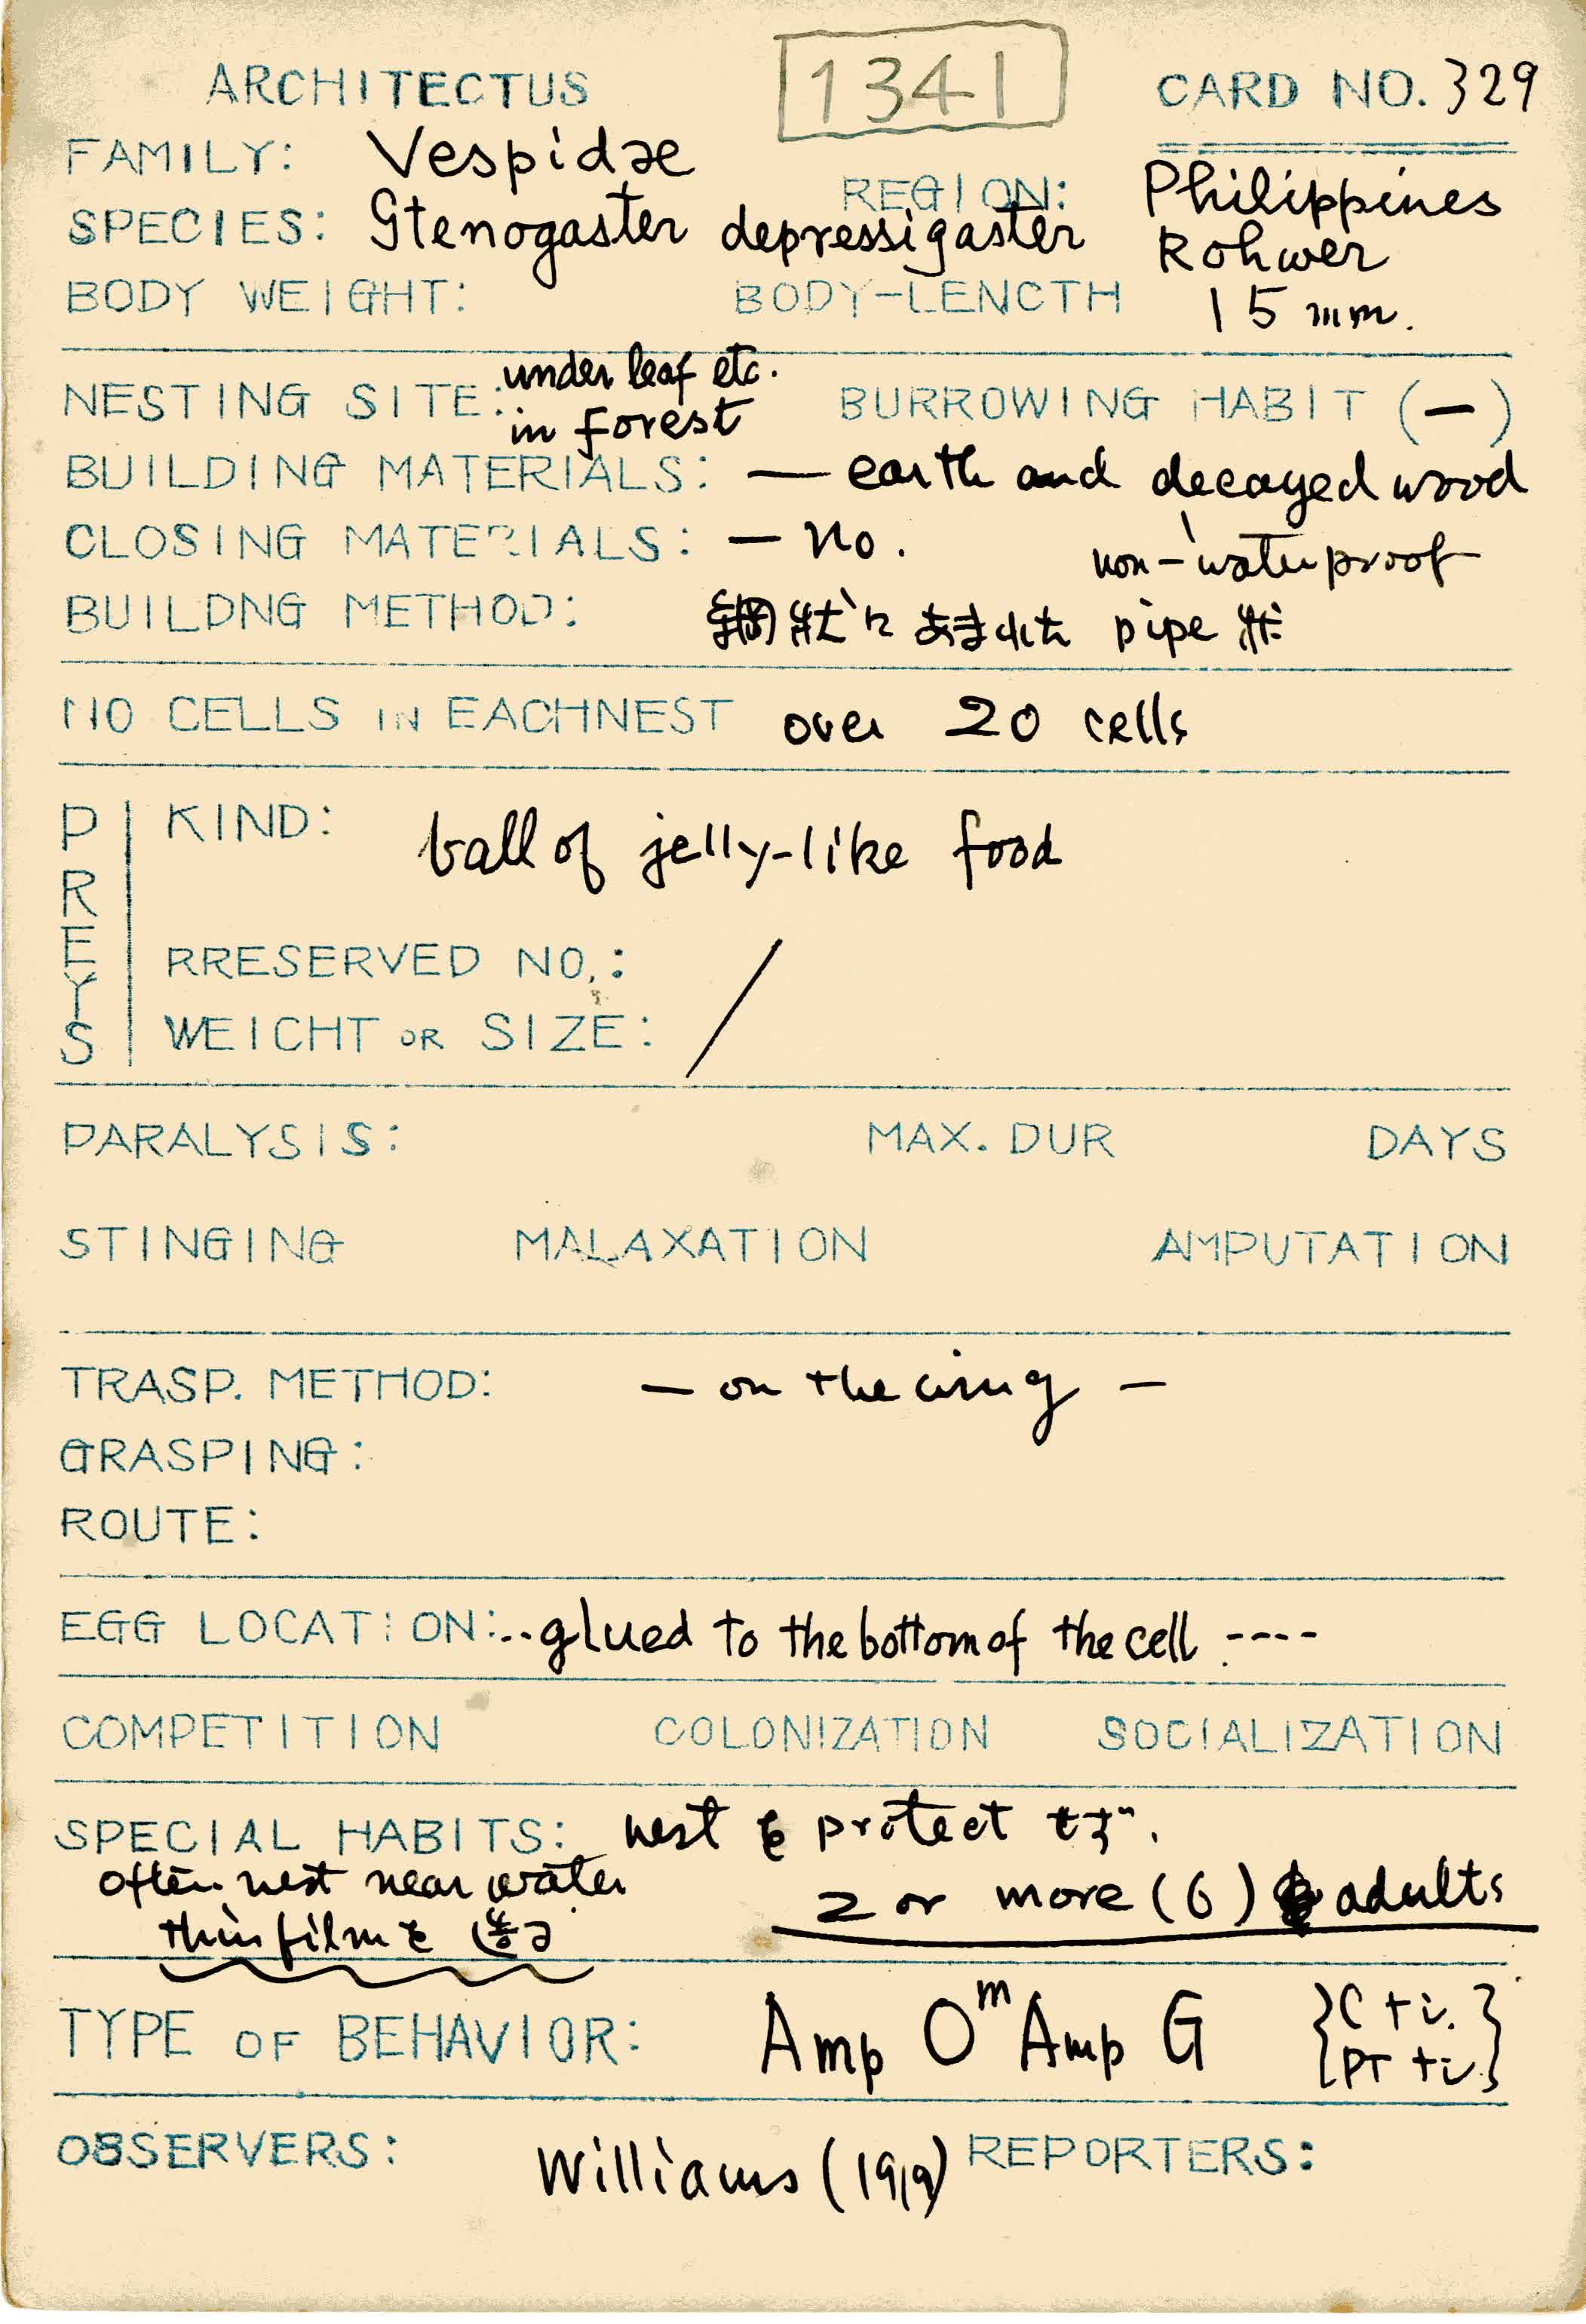 ARCHITECTUS 1341 CARD NO. 329
FAMILY: Vespidae
REGION: Philippines
SPECIES: Stenogaster depressigaster Rohwer
BODY WEIGHT: BODY-LENCTH 15 mm.
NESTING SITE: under leaf etc. in forest BURROWING HABIT (—)
BUILDING MATERIALS: — earth and decayed wood
CLOSING MATERIALS: — no. non-waterproof
BUILDNG METHOD: 網状にあまれた pipe 状
NO CELLS IN EACHNEST over 20 cells
PREYS
KIND: ball of jelly-like food
RRESERVED NO.: /
WEICHT OR SIZE:
PARALYSIS: MAX. DUR DAYS
STINGING MALAXATION AMPUTATION
TRASP. METHOD: — on the wing —
GRASPING:
ROUTE:
EGG LOCATION: ..glued to the bottom of the cell ----
COMPETITION COLONIZATION SOCIALIZATION
SPECIAL HABITS: nest を protect せず.
often nest near water
2 or more (6) adults
thin film を
TYPE OF BEHAVIOR: Amp O^m Amp G {C+i. PT+i}
OBSERVERS: Williams (1919) REPORTERS: